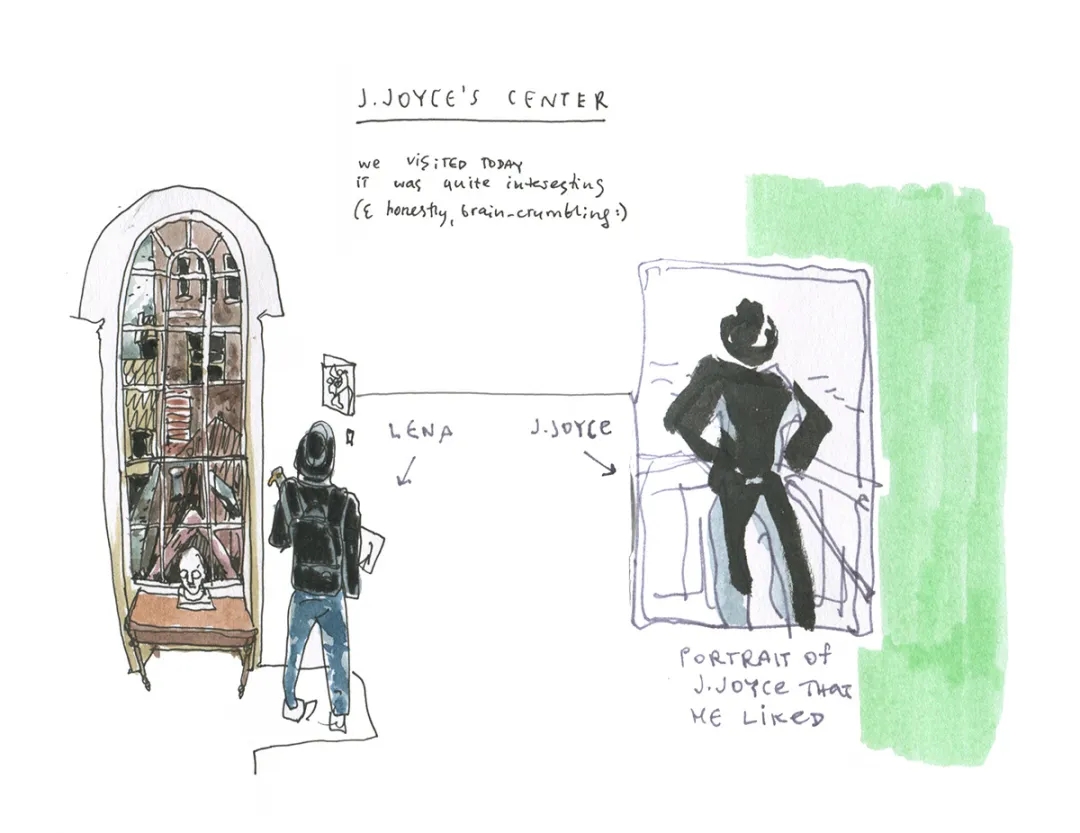 J.JOYCE'S CENTER
we ViSiTED TODAY
iT was quite interesting
(& honestly, brain-crumbling:)
LENA
J.JOYCE
PORTRAIT Of
J.JOYCE THAT
HE LIKED